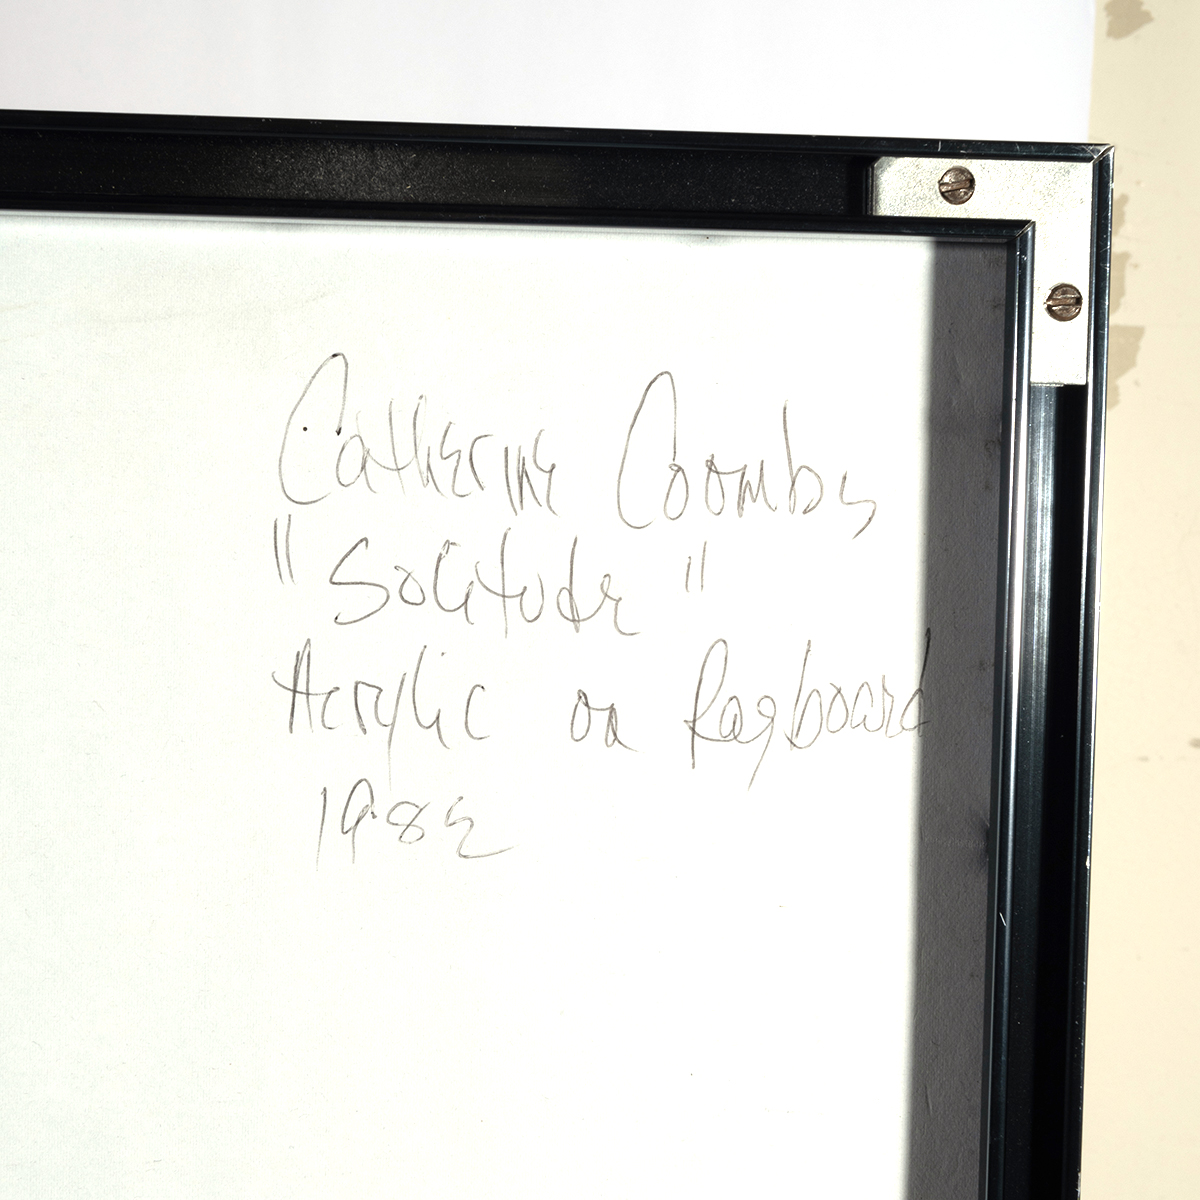 Catherine Coombs
"Solitude"
Acrylic on Ragboard
1982